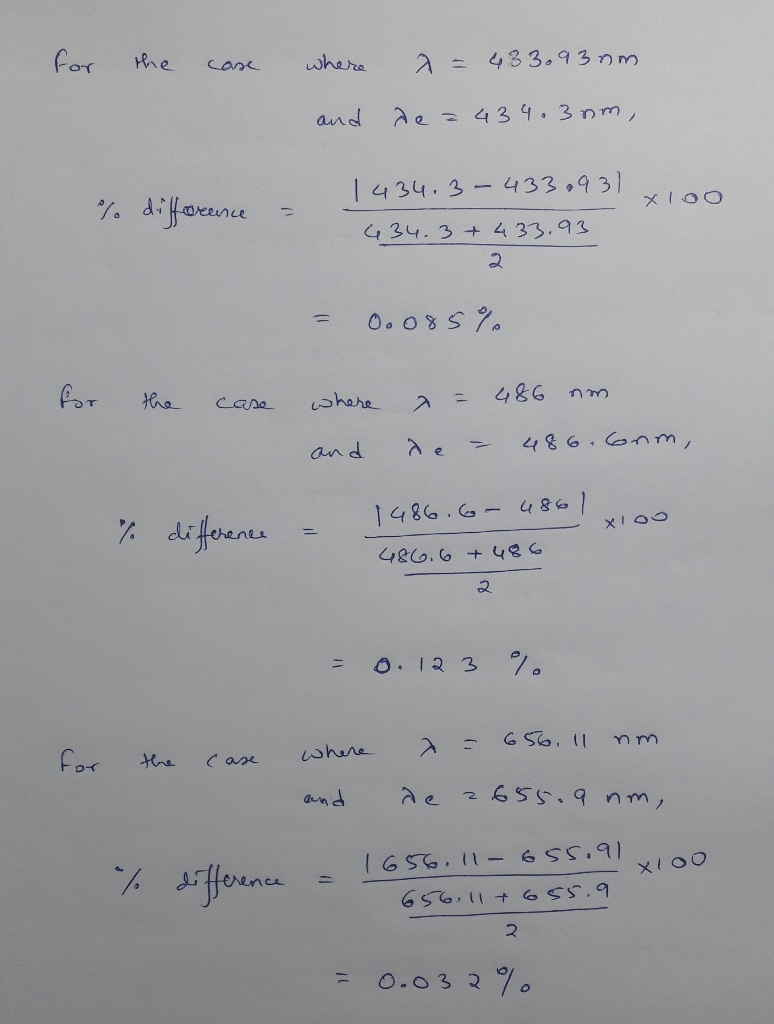 for the case where λ = 433.93 nm
and λe = 434.3 nm,
% difference = |434.3 - 433.93| / ((434.3 + 433.93) / 2) x100
= 0.085 %
for the case where λ = 486 nm
and λe = 486.6 nm,
% difference = |486.6 - 486| / ((486.6 + 486) / 2) x100
= 0.123 %
for the case where λ = 656.11 nm
and λe = 655.9 nm,
% difference = |656.11 - 655.9| / ((656.11 + 655.9) / 2) x100
= 0.032 %